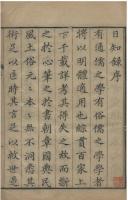 日知錄序
有通儒之學有俗儒之學學者
將以明體適用也綜貫百家上
下千載詳考其得失之故而斷
之於心筆之於書朝章國典民
風土俗元元本本無不洞悉其
術足以匡時其言足以救世是